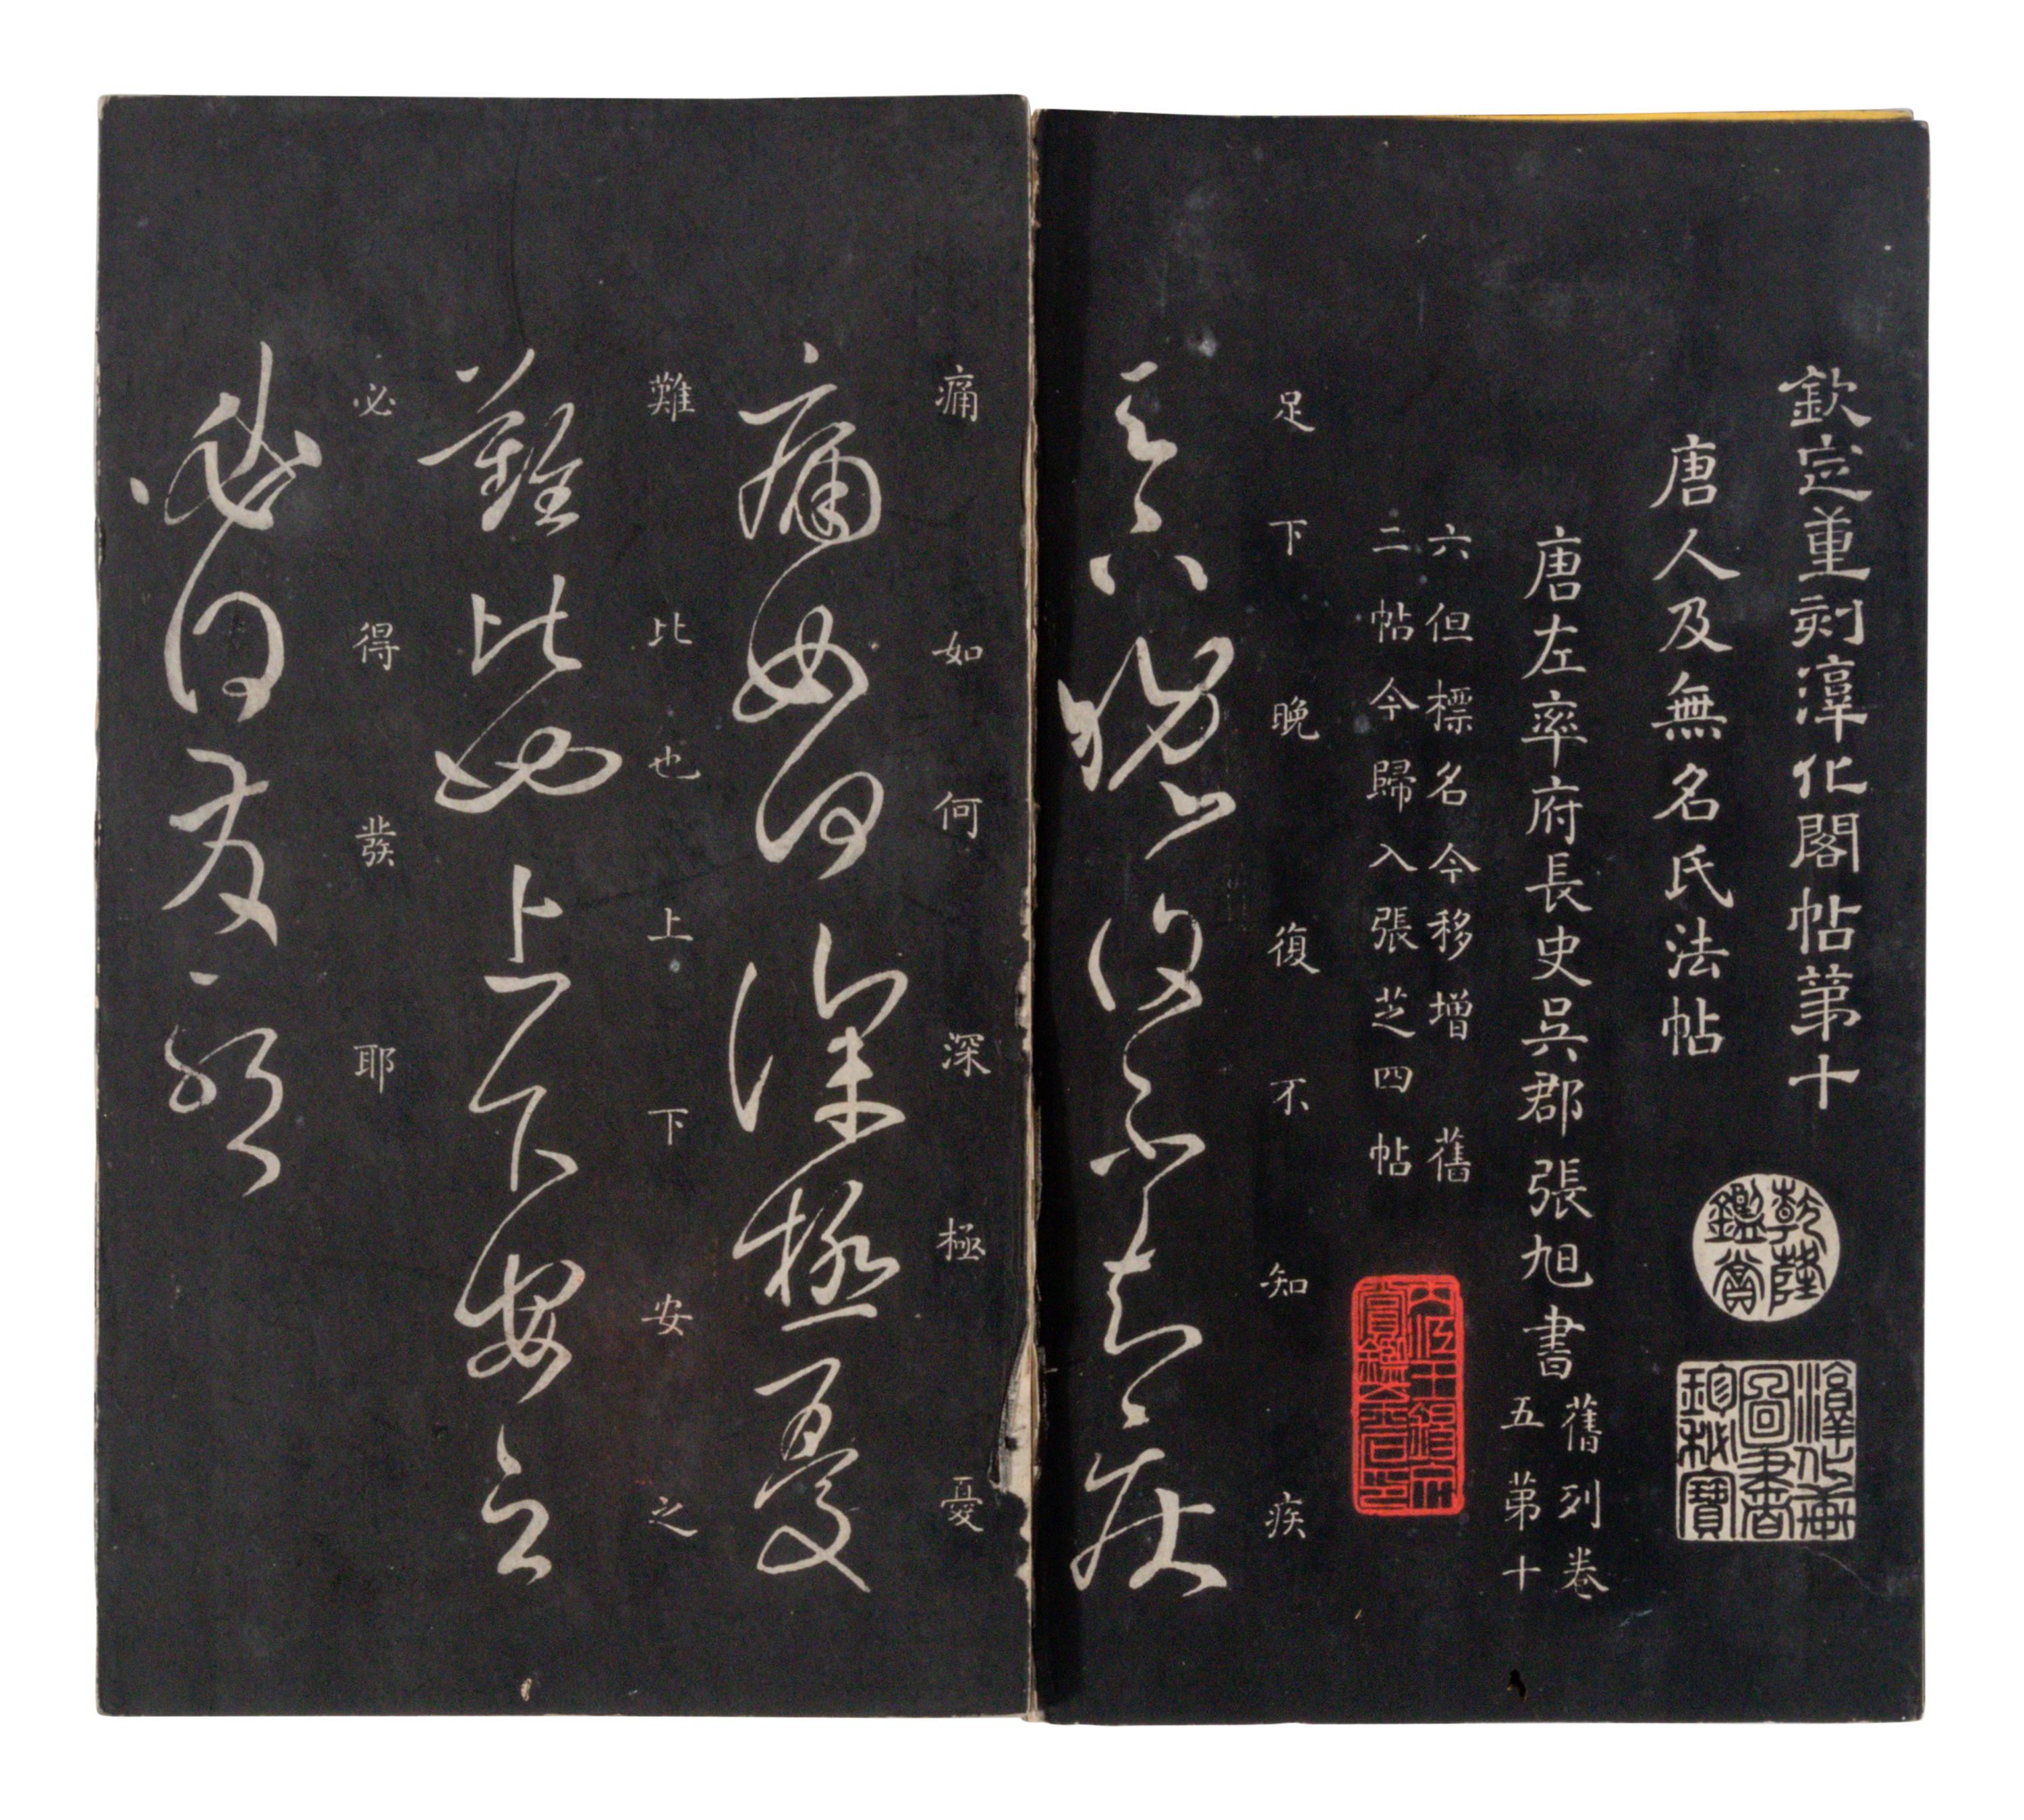 欽定重刻淳化閣帖第十
乾隆鑑賞
淳化軒圖書珍秘寶
唐人及無名氏法帖
唐左率府長史吳郡張旭書
舊列卷
五第十
六但標名今移增舊
二帖今歸入張芝四帖
足下晚復不知疾
足下晚復不知疾
痛如何深極憂
痛如何深極憂
難比也上下安之
難比也上下安之
必得發耶
必得發耶